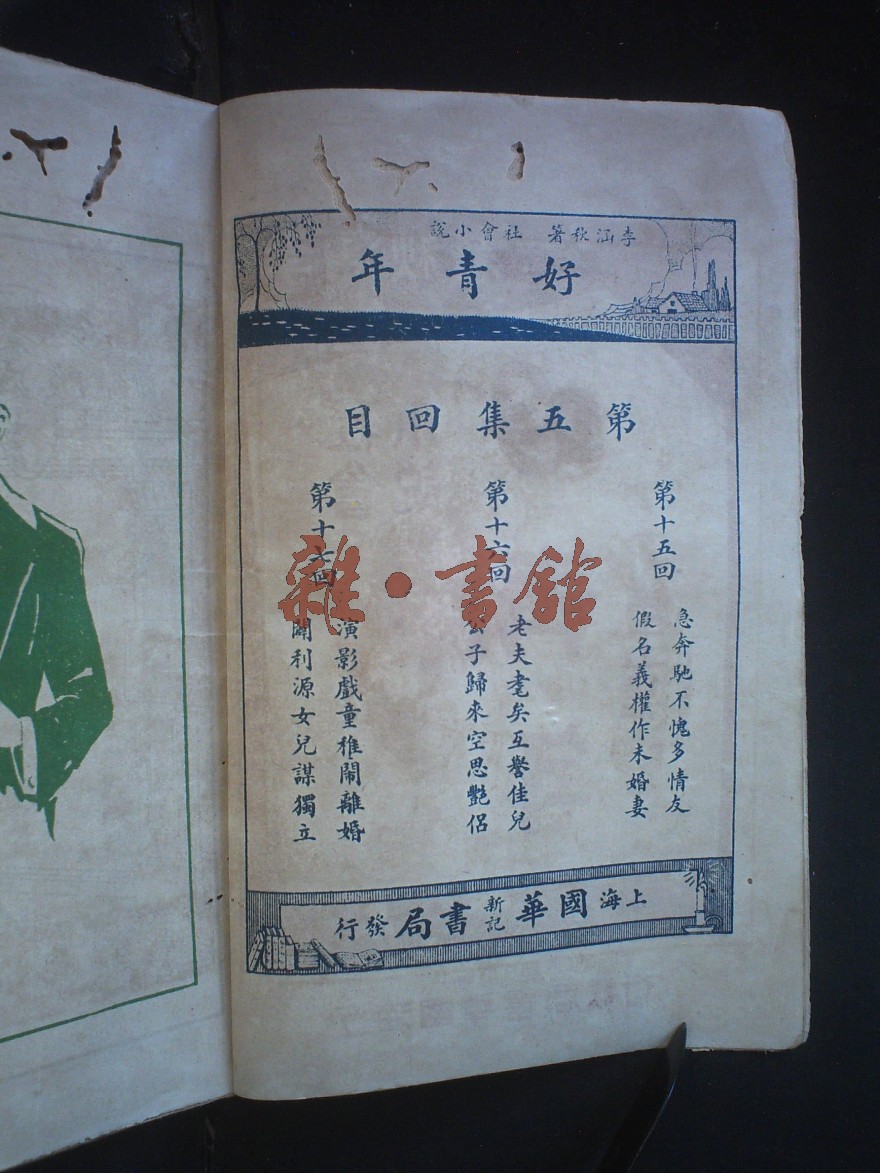 李涵秋著 社會小說
好青年
第五集回目
第十五回
急奔馳不愧多情友
假名義權作未婚妻
第十六回
老夫耄矣互譽佳兒
公子歸來空思艷侶
第十七回
演影戲童稚鬧離婚
開利源女兒謀獨立
上海國華新記書局發行
雜·書館